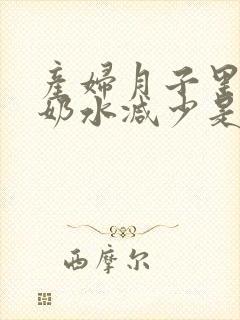 產婦月子里
奶水减少是
西摩尔